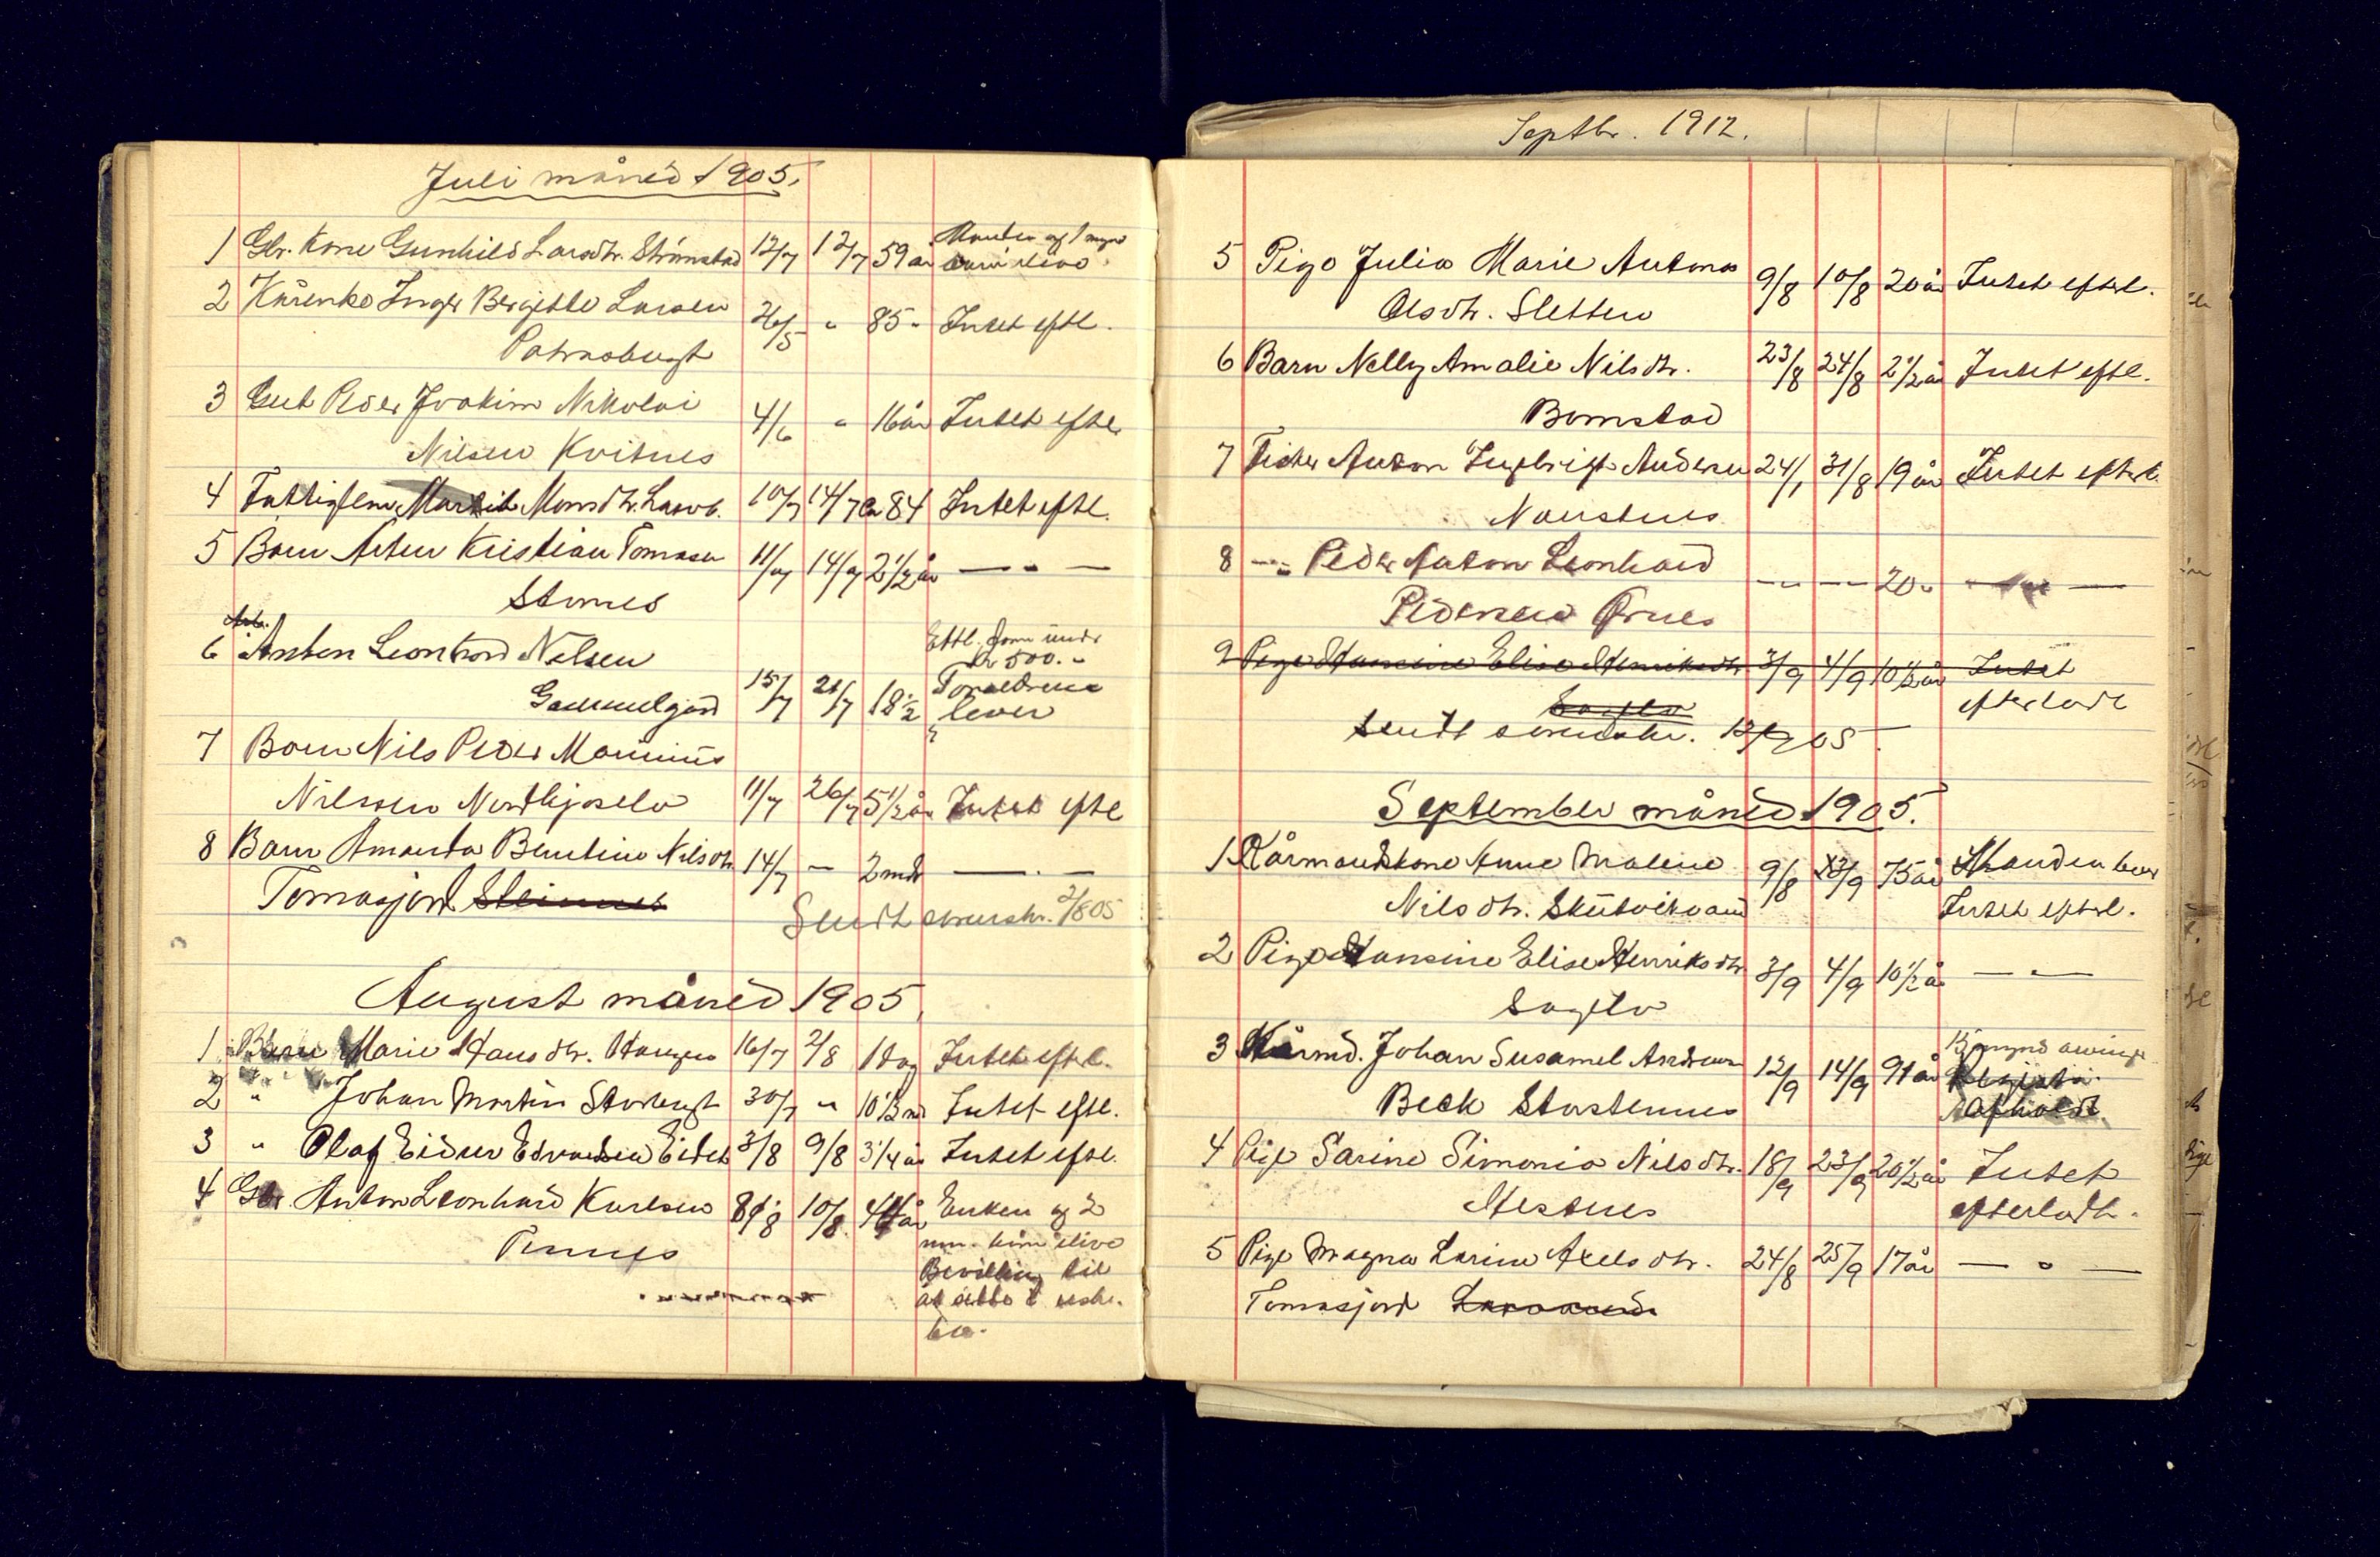 Juli måned 1905.
1 Gbr. Kone Gunhild Larsdtr. Strömstad 12/7 12/7 59 år Manden og 1 mynd
barn ilive
2 Kårenke Inger Bergitte Larsen 26/5 " 85 " Intet eftl.
3 Gut Peder Joakim Nikolai 4/6 " 16 år Intet eftl.
Nilsen Kvitnes
4 Fattiglem Marit Monsdtr. 10/7 14/7 ca 84 Intet eftl.
5 Barn Artur Kristian Tomasen 11/7 14/7 2 1/2 år — " —
Stornes
Arb.
6 Anton Leonhard Nilsen Eftl. Form under
Kr 500.-
Gammelgård 15/7 21/7 18 1/2 Forældrene
lever
7 Barn Nils Peder Marinius
Nilssen Nordkjoselv 11/7 26/7 5 1/2 år Intet eftl
8 Barn Amanda Bentine Nilsdtr. 14/7 — 2 mdr — " —
Tomasjord Steinnes
Sendt sorenskr. 2/8 05
August måned 1905.
1 Barn Marie Hansdtr. 16/7 2/8 1 dag Intet eftl.
2 " Johan Martin Storbugt 30/7 " 10 1/2 md Intet eftl.
3 " Olaf Eidur Edvardsen Eidet 3/8 9/8 3 1/4 år Intet eftl.
4 Gbr. Anton Leonhard Karlsen 8/8 10/8 44 år Enken og 2
Pennes um. børn ilive
Bevilling til
at sidde i uskr.
bo.
Septbr. 1912.
5 Pige Julia Marie Antona 9/8 10/8 20 år Intet efterl.
Olsdtr. Sletten
6 Barn Nelly Amalie Nilsdtr. 23/8 24/8 2 1/2 år Intet eftl.
Bomstad
7 Fisker Anton Ingebrigt Andersen 24/1 31/8 19 år Intet efterl.
Naustnes
8 — " Peder Anton Leonhard — " — " — 20 " — " —
Pedersen Ørnes
9 Pige Hansine Elise Henriksdtr. 3/9 4/9 10 1/2 år Intet
Sagelv efterladt
Sendt sorenskr. 12/9 05
September måned 1905.
1 Kårmandskone Anne Maline 9/8 13/9 75 år Manden lever
Nilsdtr. Skutvikvand Intet efterl.
2 Pige Hansine Elise Henriksdtr. 3/9 4/9 10 1/2 år — " —
Sagelv
3 Kårmd. Johan Susamel Andreas 12/9 14/9 91 år 15 mynd arvinge
Beck Storstennes
4 Pige Sarine Simonia Nilsdtr. 18/9 23/9 20 1/2 år Intet
Hestnes efterladt.
5 Pige Magna Larine Axelsdtr. 24/8 25/9 17 år — " —
Tomasjord